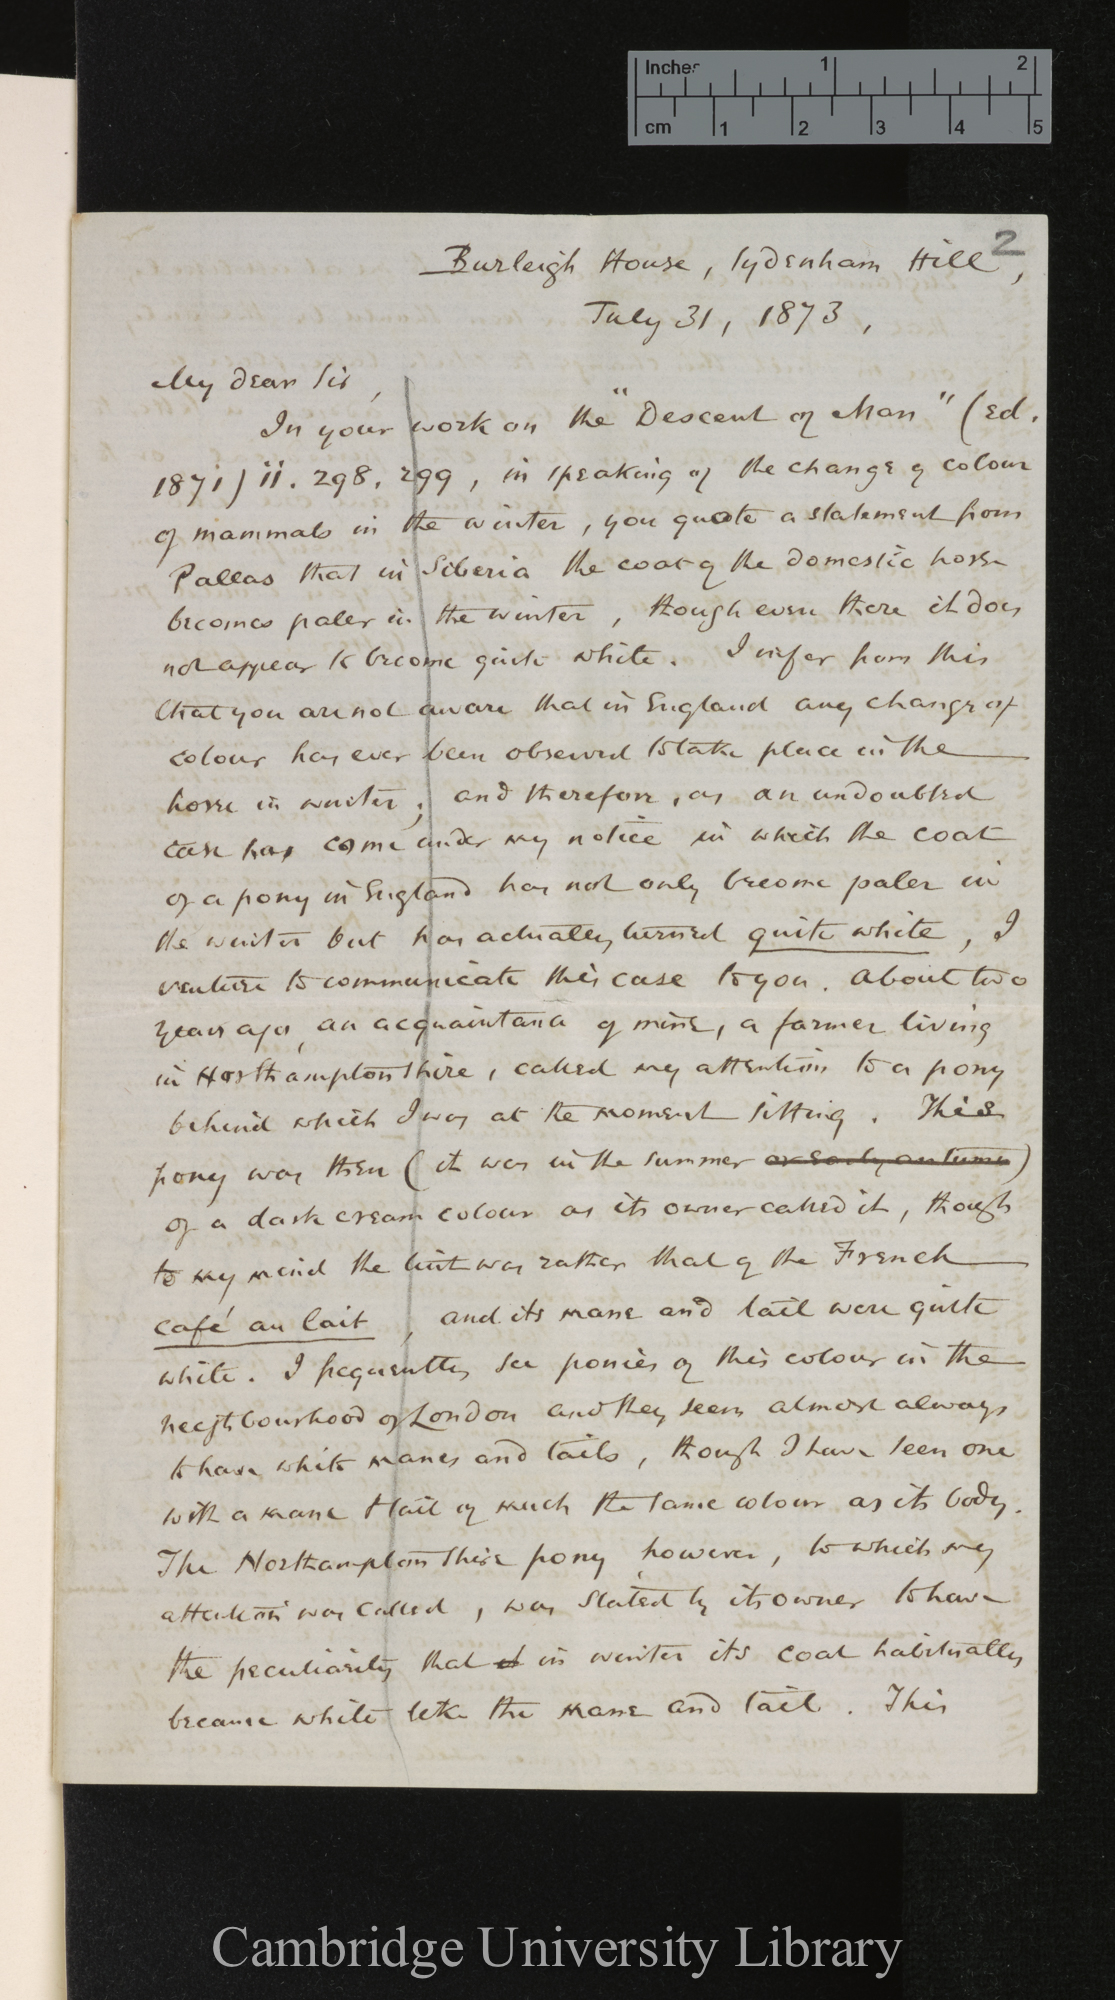 Inches 1 2
cm 1 2 3 4 5
2
Burleigh House, Sydenham Hill,
July 31, 1873,
My dear Sir,
In your work on the "Descent of Man" (Ed.
1871) ii. 298, 299, in speaking of the change of colour
of mammals in the winter, you quote a statement from
Pallas that in Siberia the coat of the domestic horse
becomes paler in the winter, though even there it does
not appear to become quite white. I infer from this
that you are not aware that in England any change of
colour has ever been observed to take place in the
horse in winter; and therefore, as an undoubted
case has come under my notice in which the coat
of a pony in England has not only become paler in
the winter but has actually turned quite white, I
venture to communicate this case to you. About two
years ago, an acquaintance of mine, a farmer living
in Northamptonshire, called my attention to a pony
behind which I was at the moment sitting. This
pony was then (it was in the summer or early autumn)
of a dark cream colour as its owner called it, though
to my mind the tint was rather that of the French
café au lait, and its mane and tail were quite
white. I frequently see ponies of this colour in the
neighbourhood of London and they seem almost always
to have white manes and tails, though I have seen one
with a mane & tail of much the same colour as its body.
The Northamptonshire pony, however, to which my
attention was called, was stated by its owner to have
the peculiarity that it in winter its coat habitually
became white like the mane and tail. This
Cambridge University Library